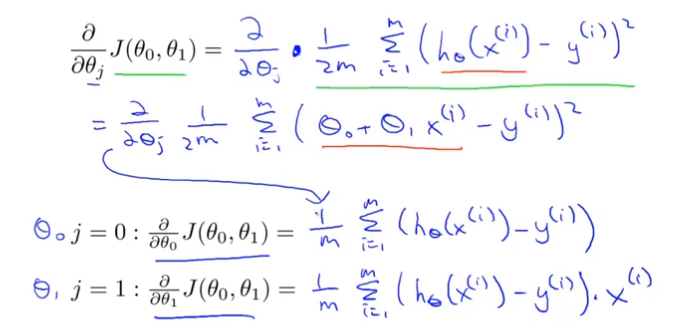 ∂/∂θⱼ J(θ₀, θ₁) = ∂/∂θⱼ · 1/2m ∑ᵢ₌₁ᵐ (h_θ(x⁽ⁱ⁾) − y⁽ⁱ⁾)²
= ∂/∂θⱼ 1/2m ∑ᵢ₌₁ᵐ (θ₀ + θ₁ x⁽ⁱ⁾ − y⁽ⁱ⁾)²
θ₀ j = 0 : ∂/∂θ₀ J(θ₀, θ₁) = 1/m ∑ᵢ₌₁ᵐ (h_θ(x⁽ⁱ⁾) − y⁽ⁱ⁾)
θ₁ j = 1 : ∂/∂θ₁ J(θ₀, θ₁) = 1/m ∑ᵢ₌₁ᵐ (h_θ(x⁽ⁱ⁾) − y⁽ⁱ⁾) · x⁽ⁱ⁾